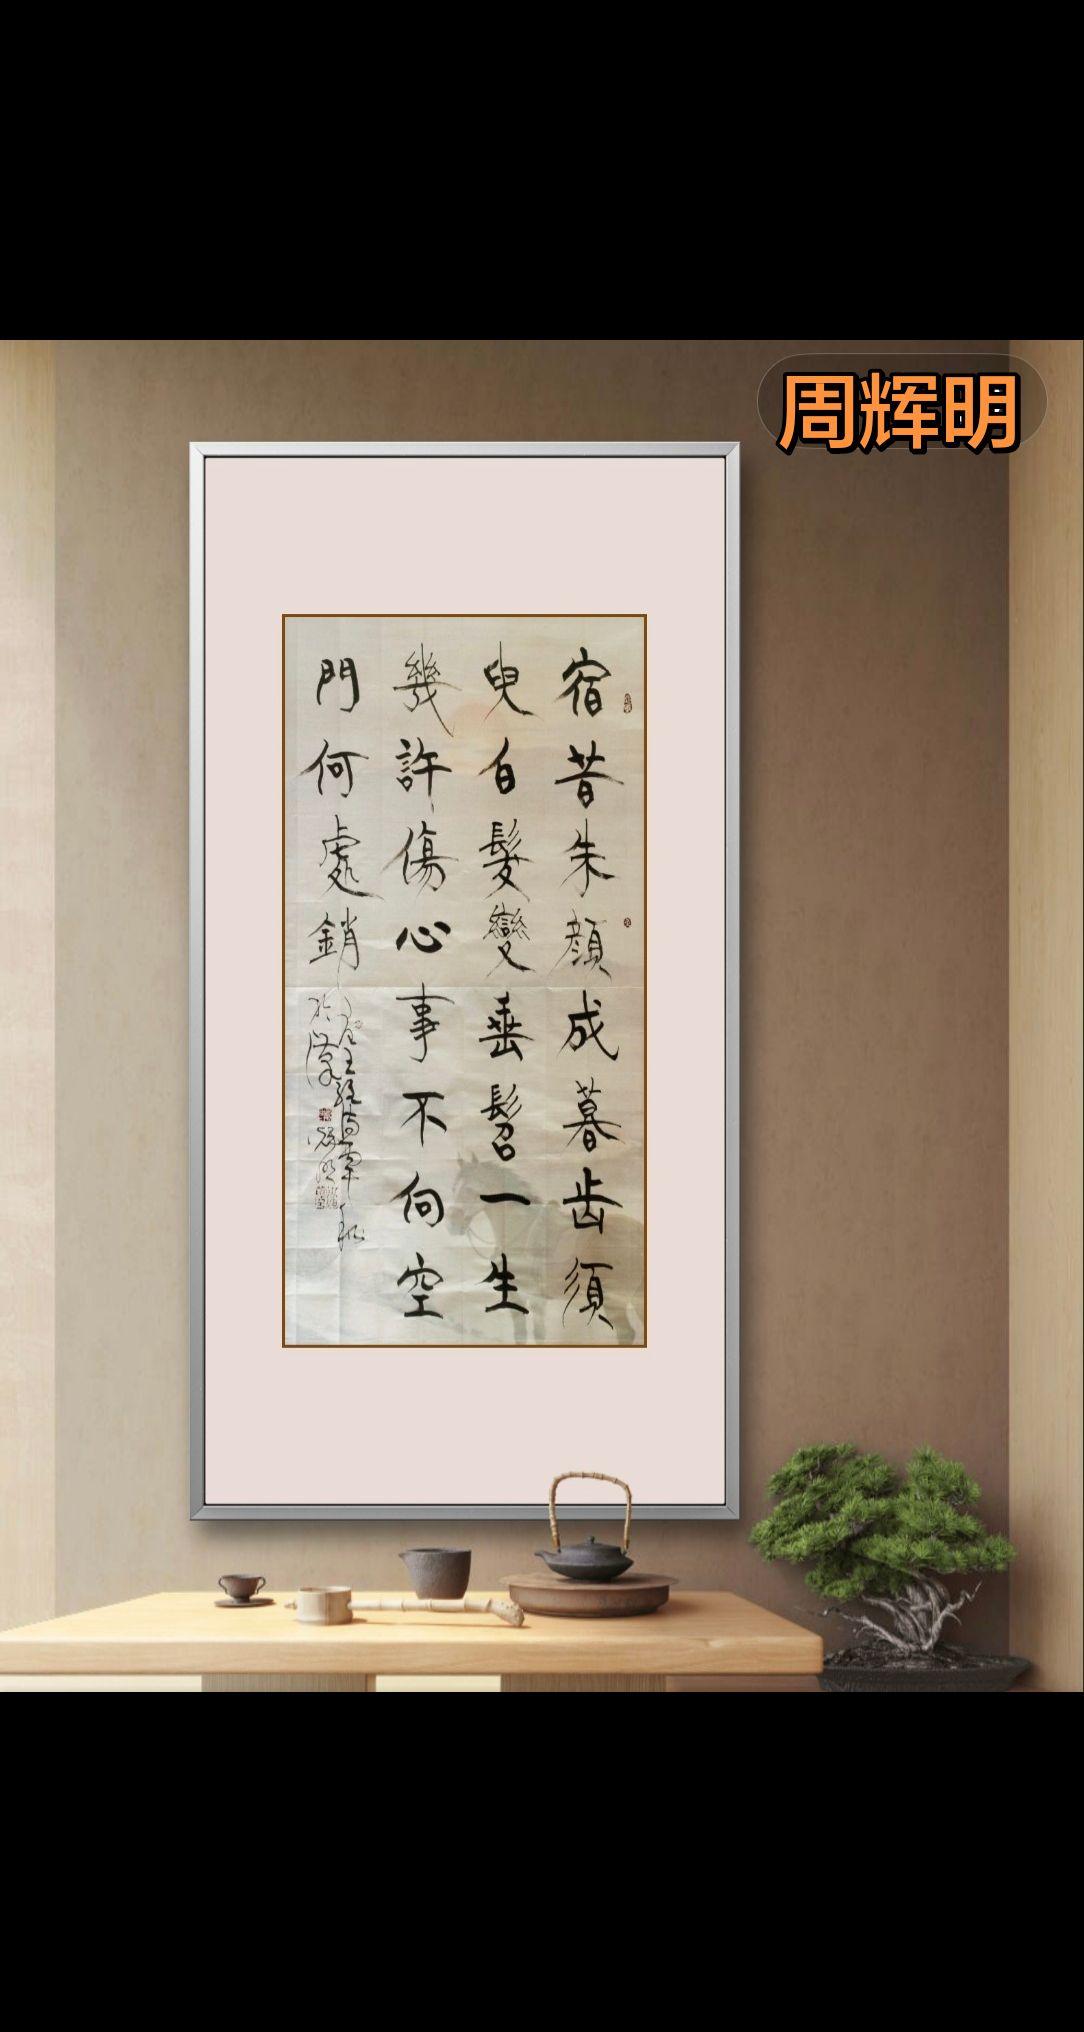 周辉明
宿昔朱顏成暮齿須
臾白髮變垂髫一生
幾許傷心事不向空
門何處銷